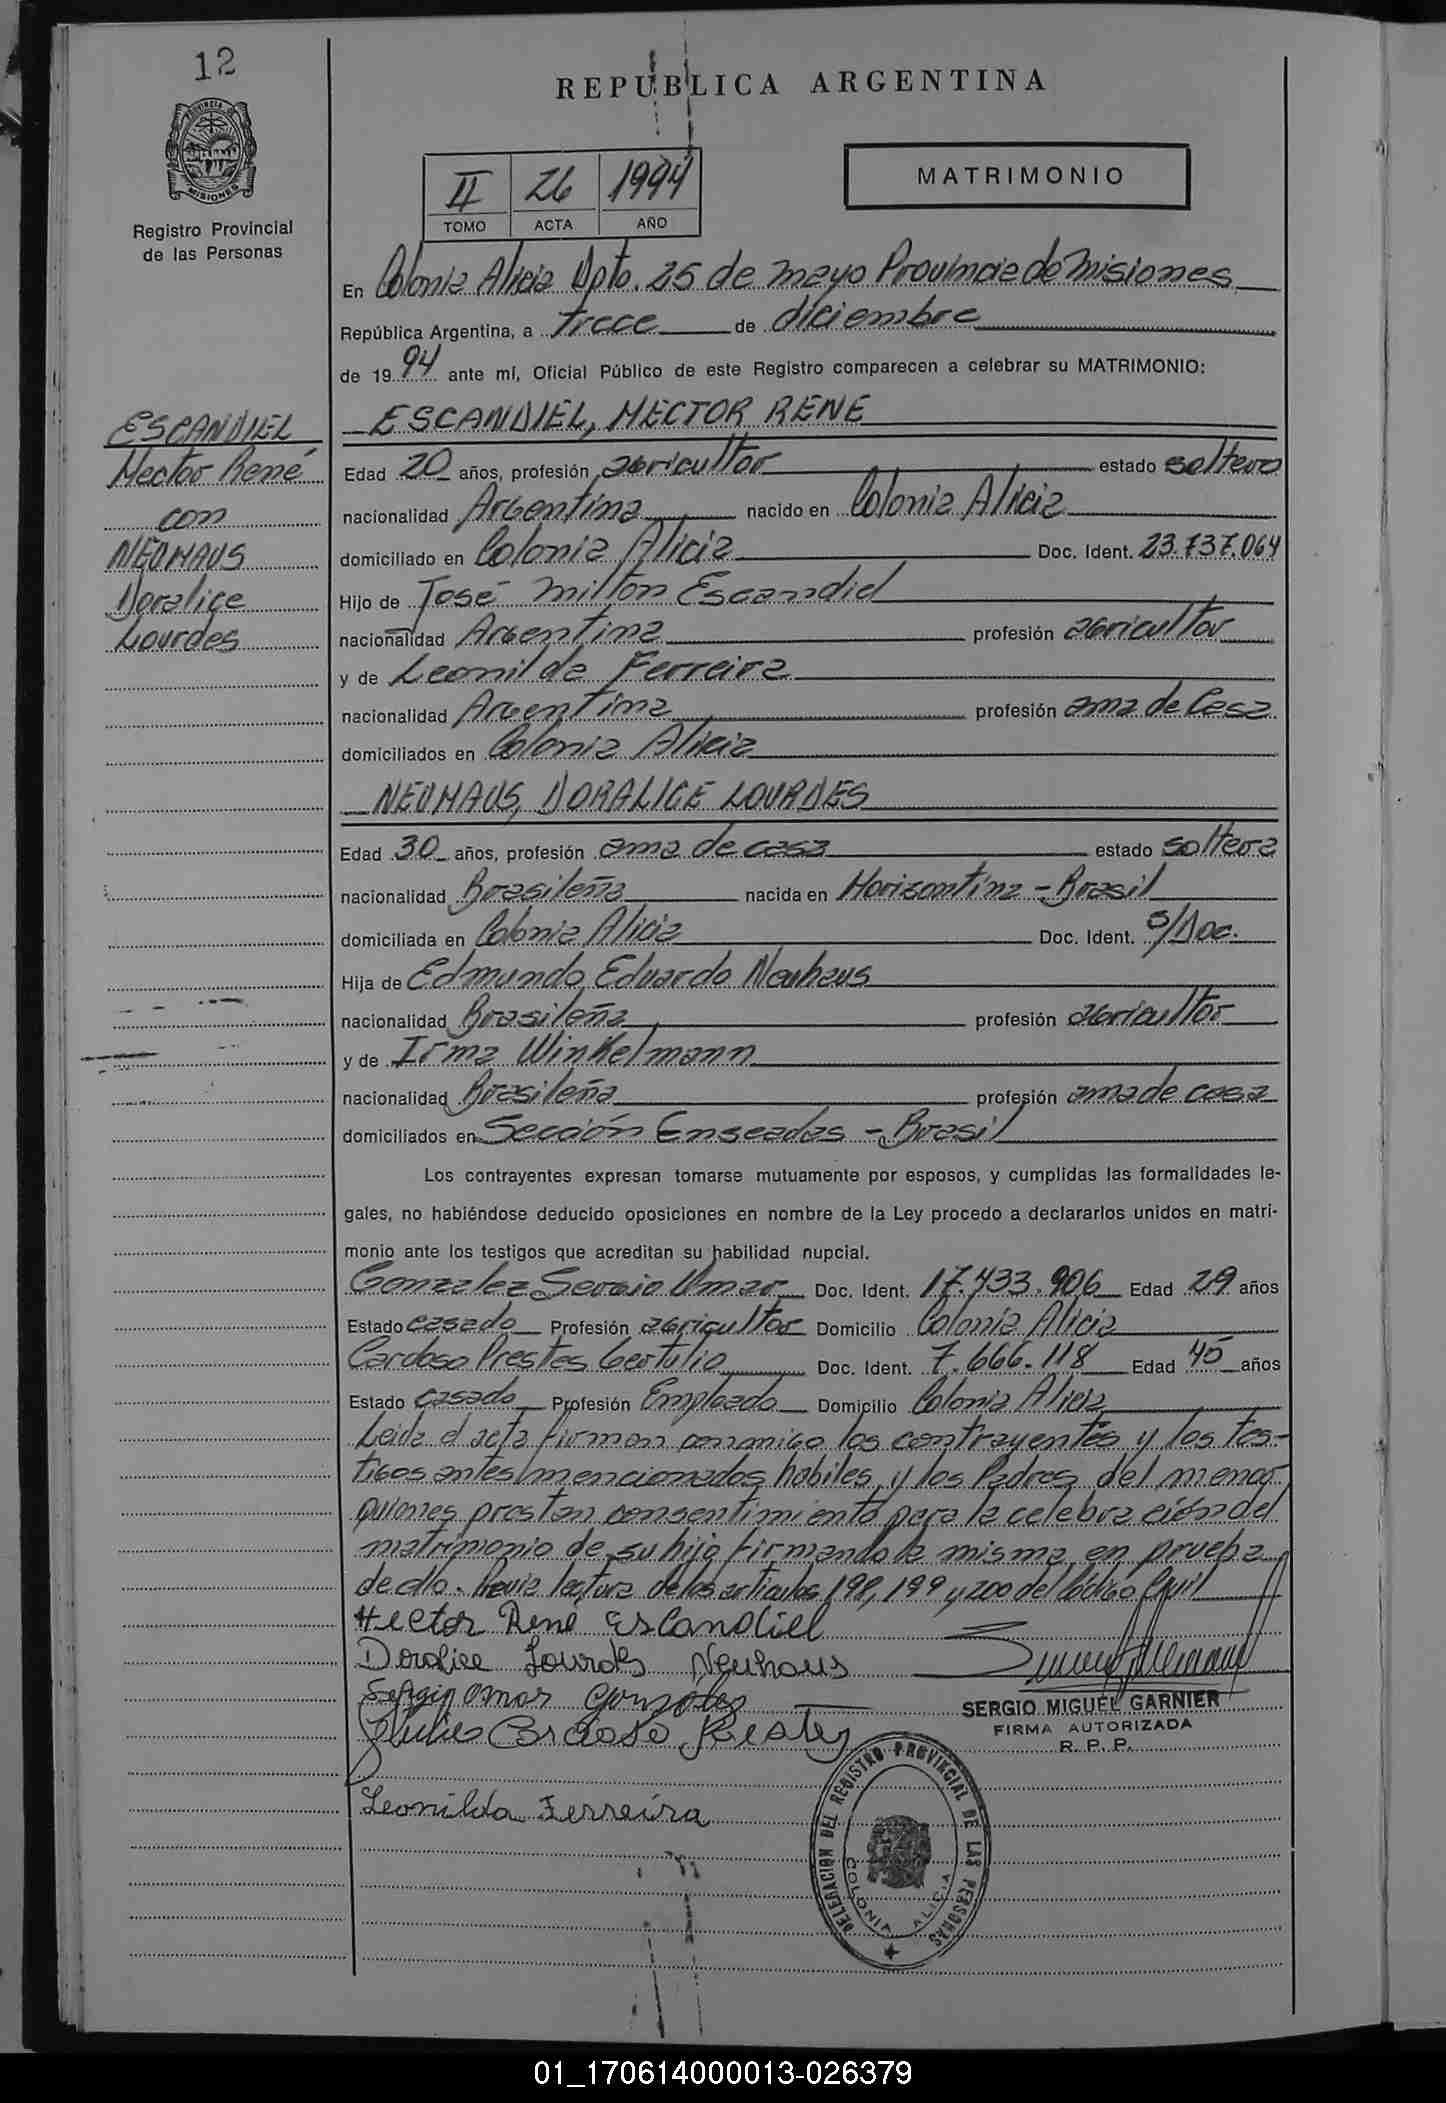 12
PROVINCIA DE MISIONES
Registro Provincial
de las Personas
REPUBLICA ARGENTINA
II 26 1994
TOMO ACTA AÑO
MATRIMONIO
En Colonia Alicia Dpto. 25 de mayo Provincia de Misiones
República Argentina, a trece de diciembre
de 1994 ante mí, Oficial Público de este Registro comparecen a celebrar su MATRIMONIO:
ESCANDIEL
Hector René
con
NEUHAUS
Doralice
Lourdes
ESCANDIEL, HECTOR RENE
Edad 20 años, profesión agricultor estado soltero
nacionalidad Argentina nacido en Colonia Alicia
domiciliado en Colonia Alicia Doc. Ident. 23.737.064
Hijo de José Milton Escandiel
nacionalidad Argentina profesión agricultor
y de Leonilda Ferreira
nacionalidad Argentina profesión ama de Casa
domiciliados en Colonia Alicia
NEUHAUS, DORALICE LOURDES
Edad 30 años, profesión ama de casa estado soltera
nacionalidad Brasileña nacida en Horizontina - Brasil
domiciliada en Colonia Alicia Doc. Ident. S/Doc.
Hija de Edmundo Eduardo Neuhaus
nacionalidad Brasileña profesión agricultor
y de Irma Winkelmann
nacionalidad Brasileña profesión ama de casa
domiciliados en Sección Enseadas - Brasil
Los contrayentes expresan tomarse mutuamente por esposos, y cumplidas las formalidades le-
gales, no habiéndose deducido oposiciones en nombre de la Ley procedo a declararlos unidos en matri-
monio ante los testigos que acreditan su habilidad nupcial.
Gonzalez Sergio Omar Doc. Ident. 17.433.906 Edad 29 años
Estado casado Profesión agricultor Domicilio Colonia Alicia
Cardoso Prestes Gertulio Doc. Ident. 7.666.118 Edad 45 años
Estado casado Profesión Empleado Domicilio Colonia Alicia
Leida el acta firman conmigo los contrayentes y los tes-
tigos antes mencionados habiles, y los Padres del menor
quienes prestan consentimiento para la celebración del
matrimonio de su hijo firmando la misma en prueba
de ello. Previa lectura de los articulos 198, 199 y 200 del Código Civil
Hector René Escandiel
Doralice Lourdes Neuhaus
Sergio Omar Gonzalez
Cardoso Prestes
SERGIO MIGUEL GARNIER
FIRMA AUTORIZADA
R. P. P.
Leonilda Ferreira
DELEGACION DEL REGISTRO PROVINCIAL DE LAS PERSONAS
COLONIA ALICIA
01_170614000013-026379